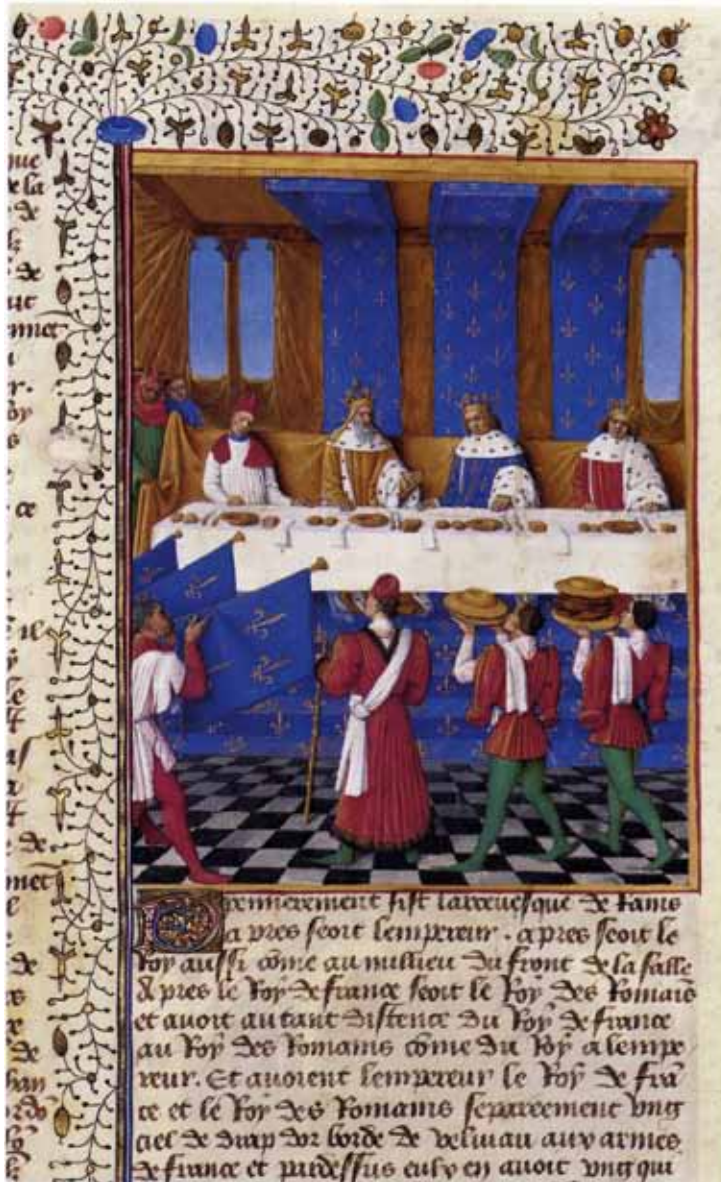 nue
de la
de
de
ut
met
r.
oy
s
ce
il
le
de
met
de
de
han
Premierement sist larcevesque de Rains
apres seoit lempereur . apres seoit le
Roy aussi cõme au millieu du front de la salle
Apres le Roy de france seoit le Roy des Romais
et avoit autant distence du Roy de france
au Roy des Romains cõme du Roy a lempe
reur. Et avoient lempereur le Roy de frã
ce et le Roy des Romains separeement ung
ciel de drap dor borde de veluiau aux armes
de france et pardessus eulx en avoit ung qui